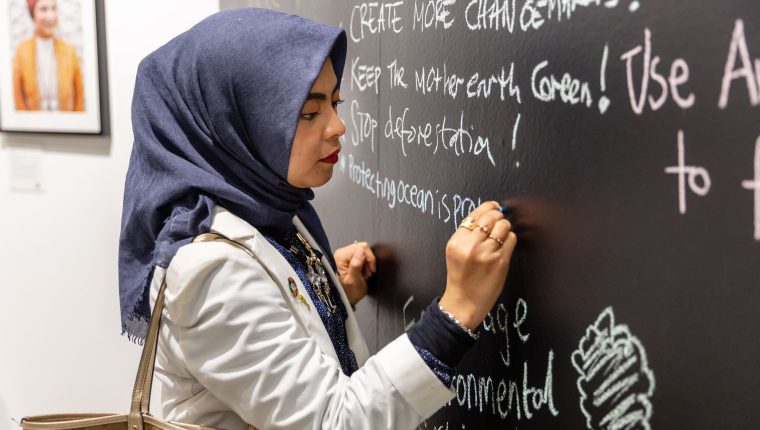 CREATE MORE CHANGEMAKERS!
KEEP THE MOTHER EARTH GREEN!
STOP deforestation!
Protecting ocean is pro
Use
to